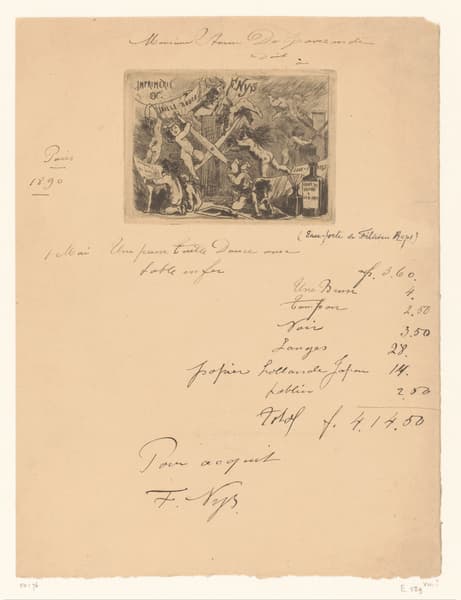 Monsieur
doit à
IMPRIMERIE
DE
TAILLE DOUCE
F. Nys
Paris
1890
(Eau forte de Félicien Rops)
1 Mai Une presse Taille Douce avec
table en fer f. 360.
4.
Tampon 2.50
Noir 3.50
Langes 28.
papier hollande Japon 14.
tablier 2.50
Total f. 414.50
Pour acquit
F. Nys.